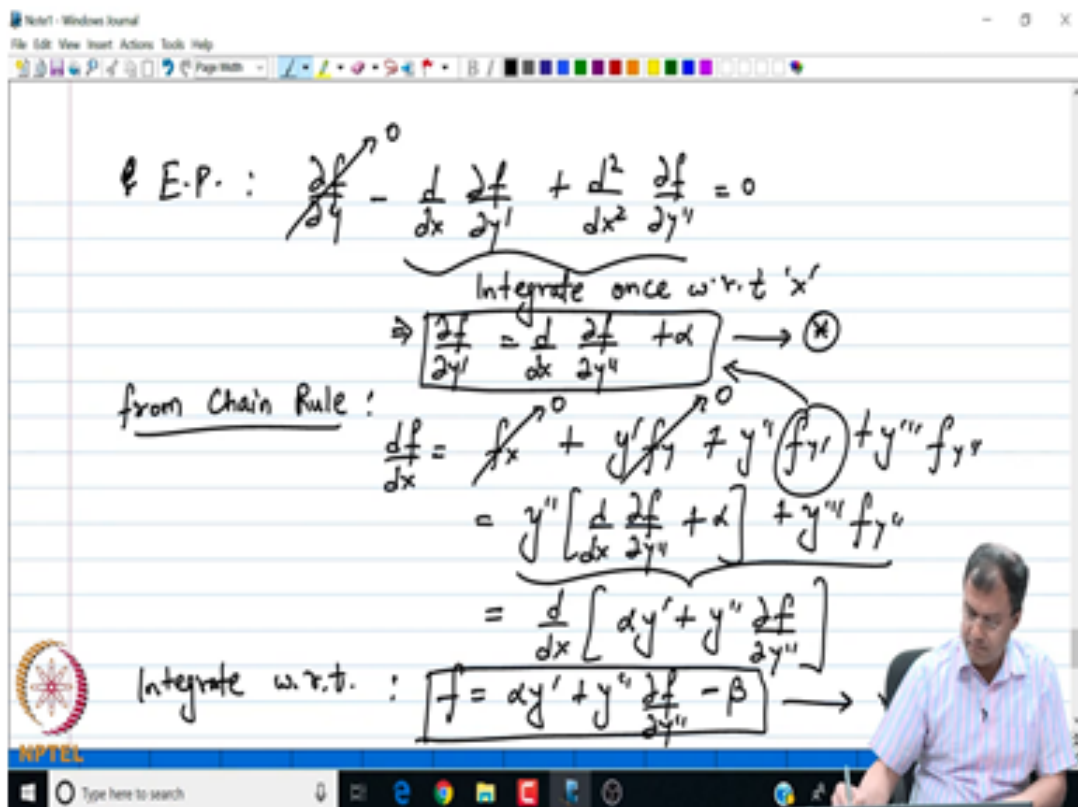 Note1 - Windows Journal
File Edit View Insert Actions Tools Help
Page Width B I
E.P. : ∂f/∂y → 0 - d/dx ∂f/∂y' + d²/dx² ∂f/∂y'' = 0
Integrate once w.r.t 'x'
⇒ ∂f/∂y' = d/dx ∂f/∂y'' + α → *
from Chain Rule :
df/dx = fx → 0 + y'fy → 0 + y'' fy' + y''' fy''
= y'' [d/dx ∂f/∂y'' + α] + y''' fy''
= d/dx [αy' + y'' ∂f/∂y'']
Integrate w.r.t. : f = αy' + y'' ∂f/∂y'' - β →
NPTEL
Type here to search